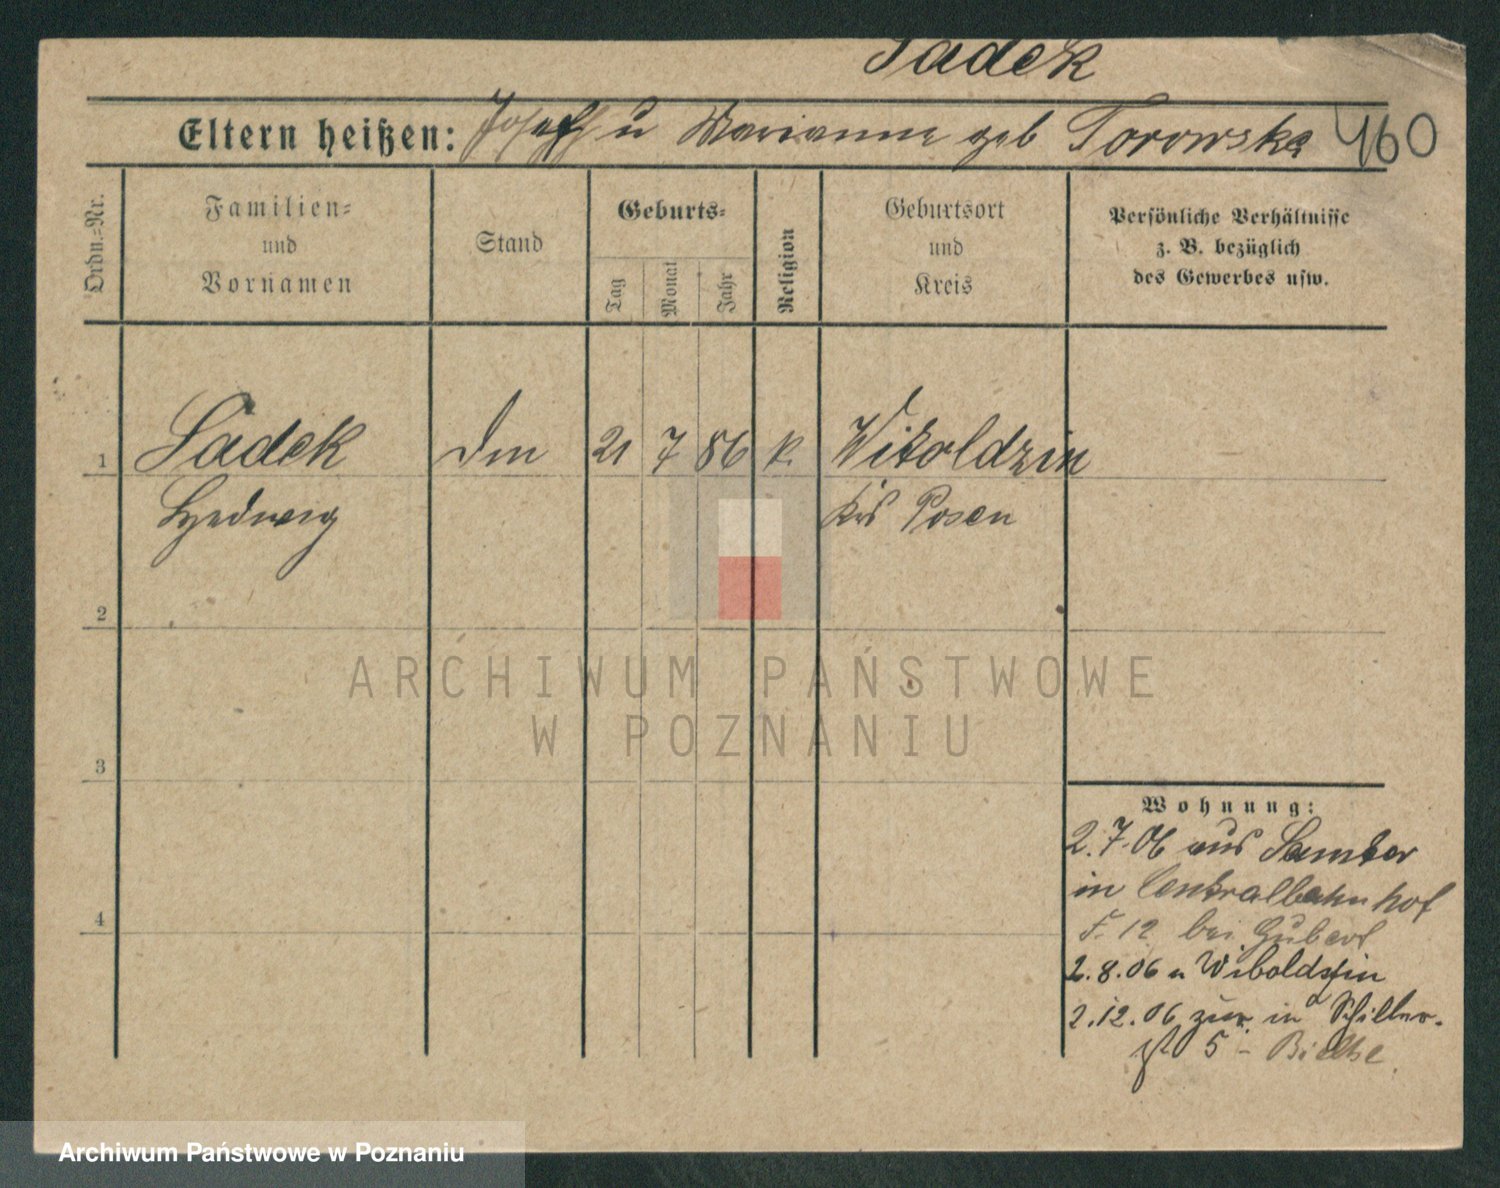 Sadek
Eltern heißen: Joseph u Marianne geb Torowska 460
Ordn.-Nr.
Familien- und Vornamen
Stand
Geburts-
Tag Monat Jahr
Religion
Geburtsort und Kreis
Persönliche Verhältnisse
z. B. bezüglich
des Gewerbes usw.
1 Sadek 21 7 86 k. Witoldzin
Hedwig Krs Posen
2
ARCHIWUM PAŃSTWOWE
W POZNANIU
3
Wohnung:
2.7.06 aus Samter
in Centralbahnhof
4
F. 12 bei Hubert
2.8.06 n Witoldzin
2.12.06 zur. in Schiller-
st 5 -
Archiwum Państwowe w Poznaniu